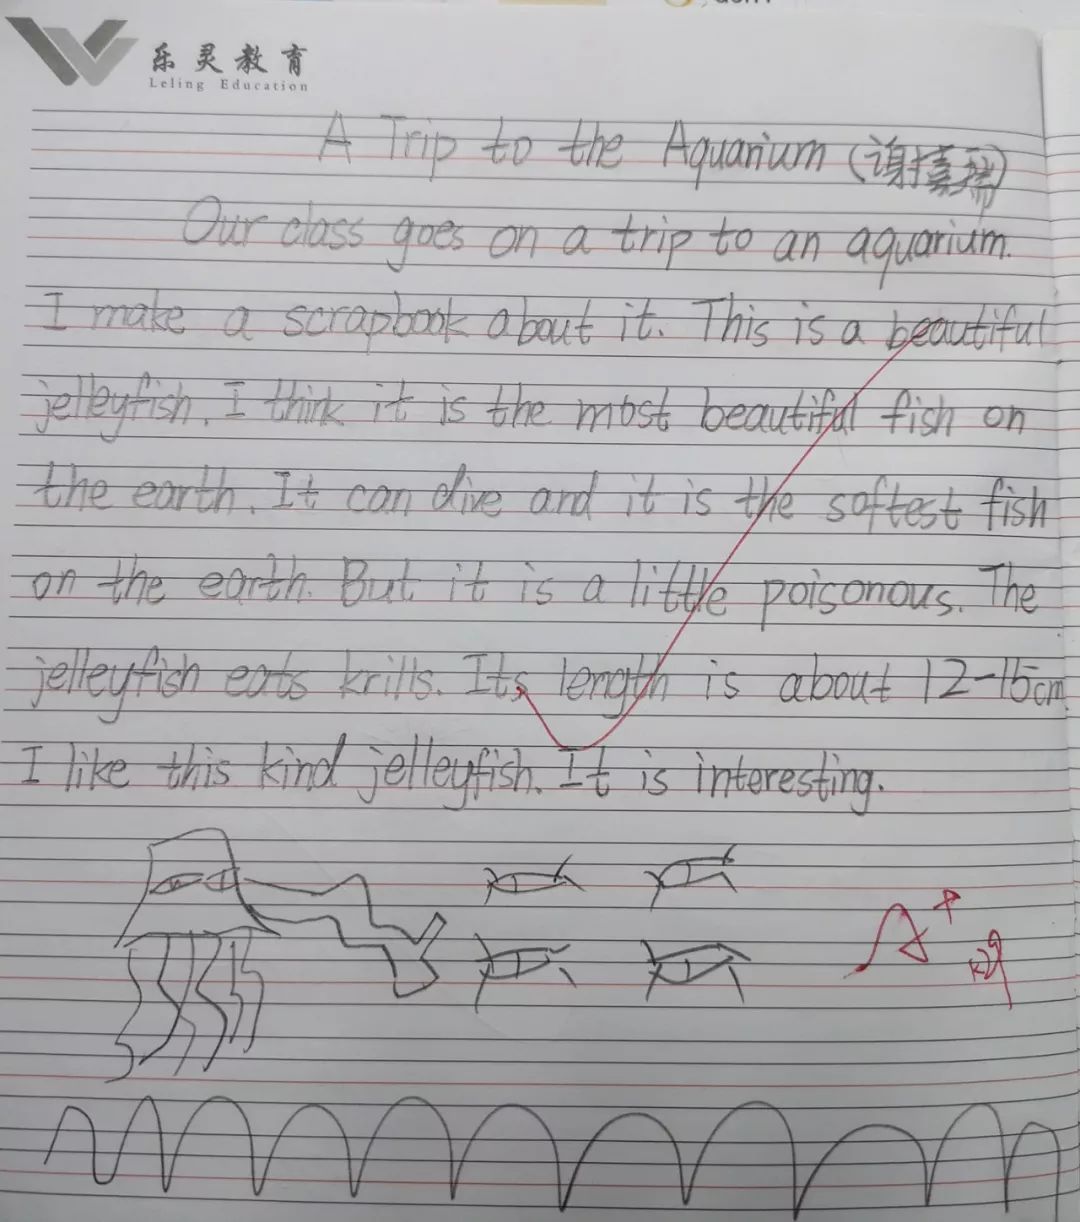 乐灵教育
Leling Education
A Trip to the Aquarium (谢
Our class goes on a trip to an aquarium.
I make a scrapbook about it. This is a beautiful
jelleyfish. I think it is the most beautiful fish on
the earth. It can dive and it is the softest fish
on the earth. But it is a little poisonous. The
jelleyfish eats krills. Its length is about 12-15cm
I like this kind jelleyfish. It is interesting.
A+